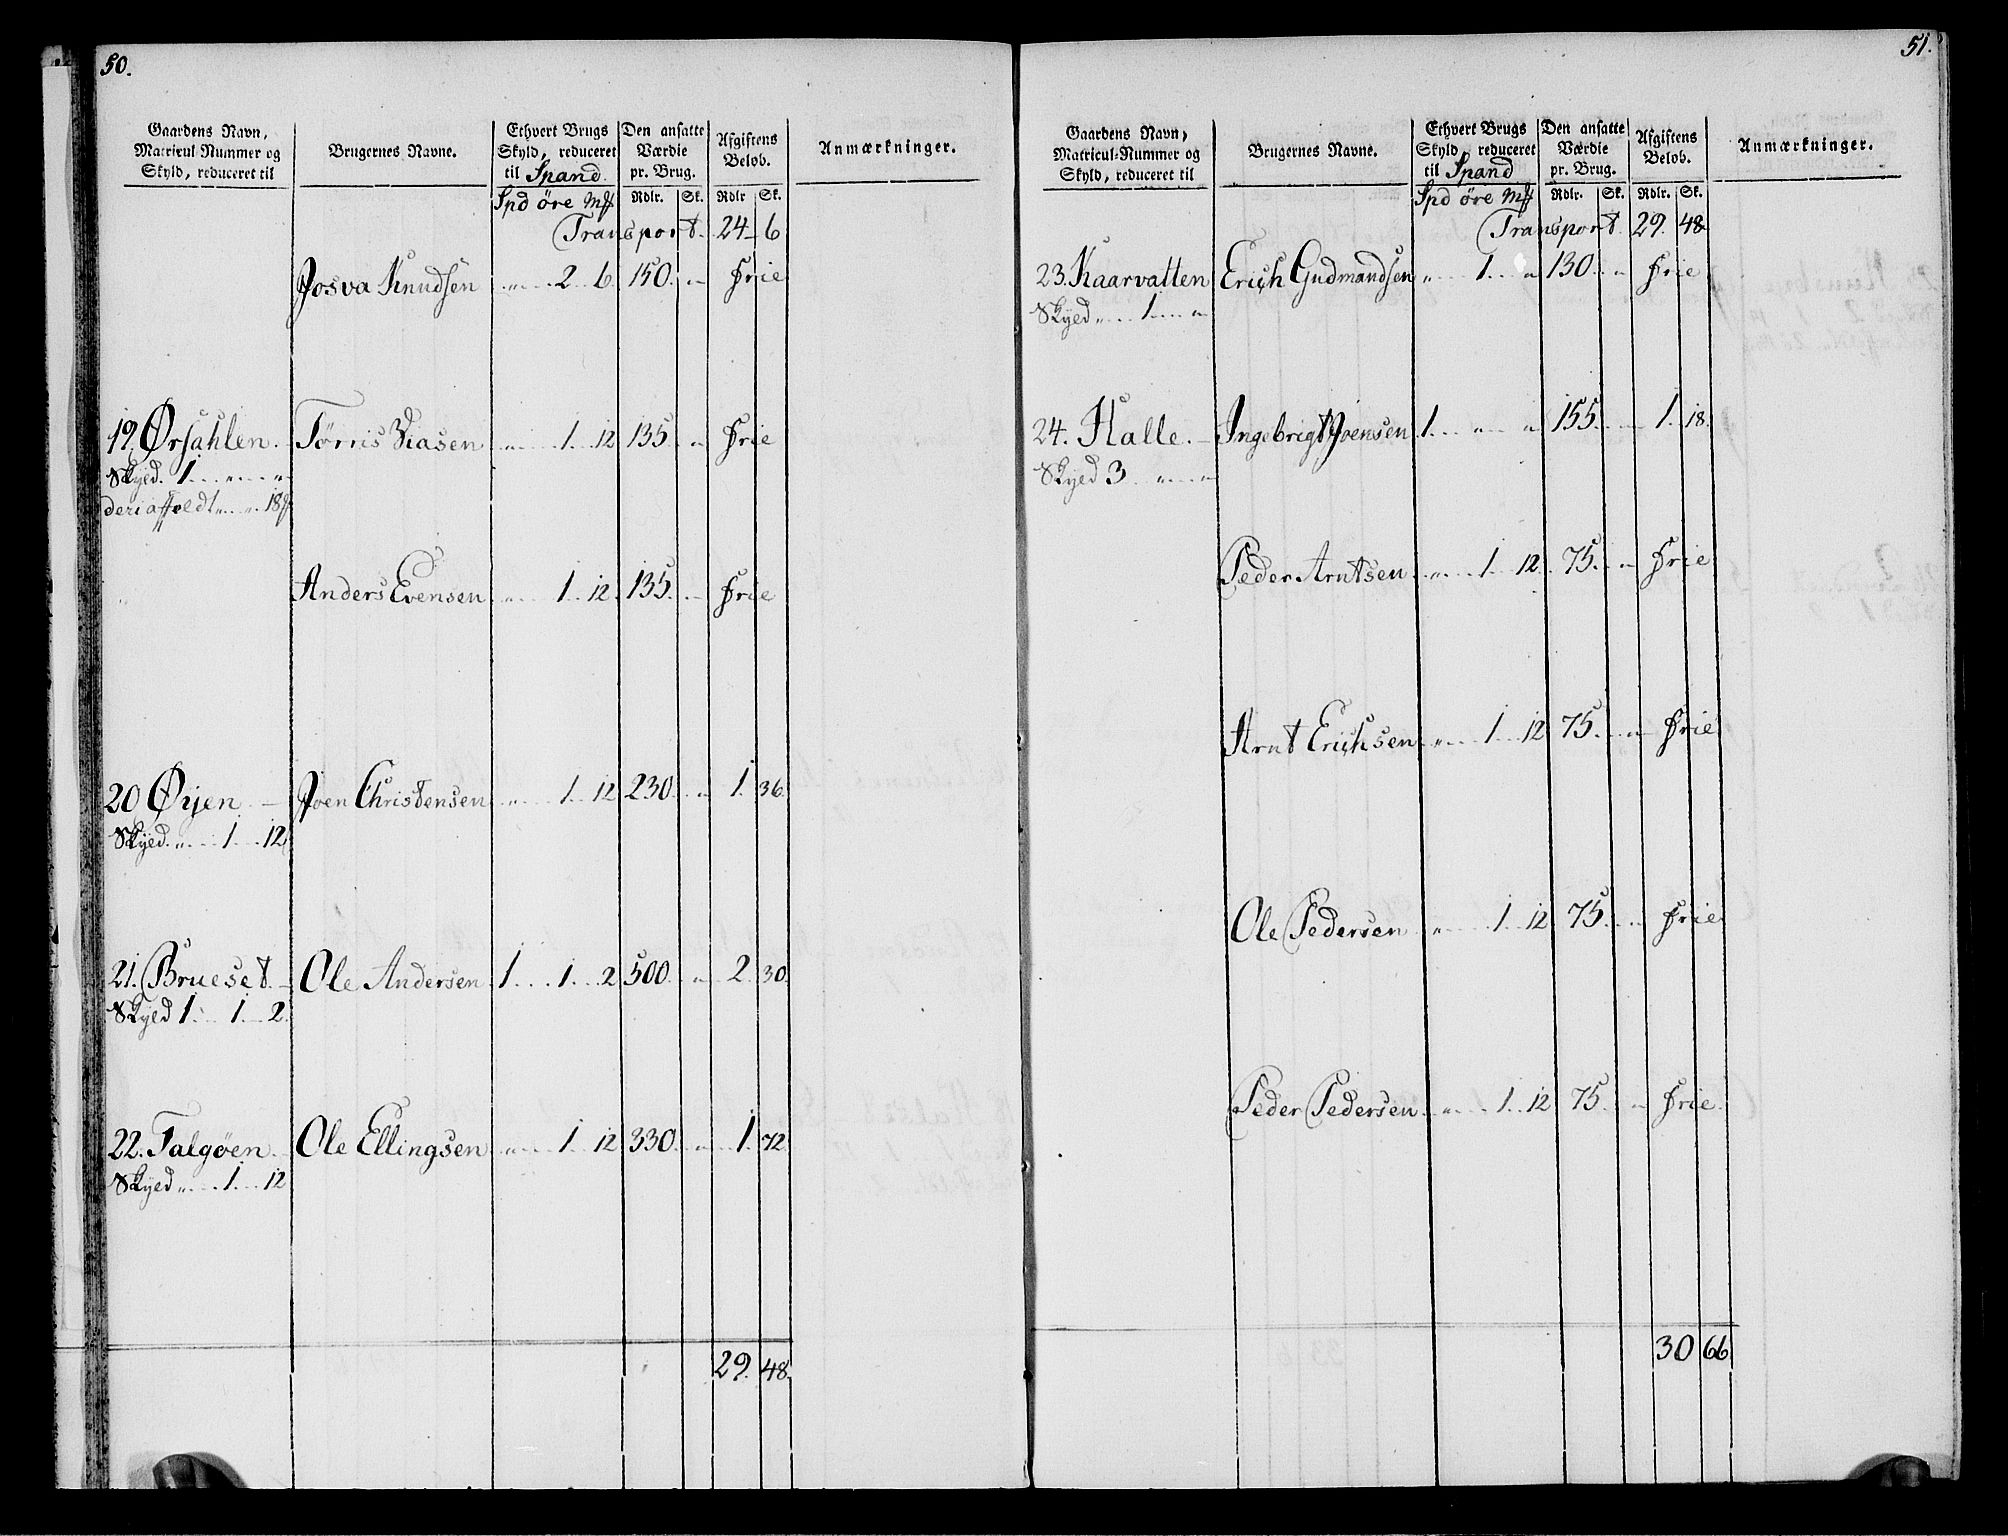 50.
Gaardens Navn, Matricul Nummer og Skyld, reduceret til | Brugernes Navne. | Ethvert Brugs Skyld, reduceret til Spand. | Den ansatte Værdie pr. Brug. | Afgiftens Belob. | Anmærkninger.
Spd öre mʄ | Rdlr. | Sk. | Rdlr | Sk.
Transport. 24 6
Josva Knudsen " 2 6. 150. " Frie
19. Ørsahlen. Tørris 1 12 135. " Frie
Skyed. 1 " "
deri affeldt " " 18
Anders Evensen " 1 12. 135. " Frie
20 Øyen. Joen Christensen " 1 12 230. " 1. 36.
Skyed. " 1 12
21. Brueset. Ole Andersen 1 1. 2 500. " 2. 30.
Skyed 1. 1. 2.
22. Talgøen. Ole Ellingsen " 1 12 330. " 1. 72.
Skyed " 1. 12
29. 48.
51.
Gaardens Navn, Matricul-Nummer og Skyld, reduceret til | Brugernes Navne. | Ethvert Brugs Skyld, reduceret til Spand | Den ansatte Værdie pr. Brug. | Afgiftens Belob. | Anmærkninger.
Spd öre mʄ | Rdlr. | Sk. | Rdlr. | Sk.
Transport. 29. 48
23. Kaarvatten Erich Gudmandsen " 1. " 130. " Frie
Skyed " 1 "
24. Halle. Ingebrigt Joensen 1. " " 155. 1. 18.
Skyed 3. " "
Peder Arntsen " 1 12. 75. " Frie
Arnt Erichsen " 1 12 75. " Frie
Ole Pedersen " 1 12 75. " Frie
Peder Pedersen " 1 12 75. " Frie.
30 66